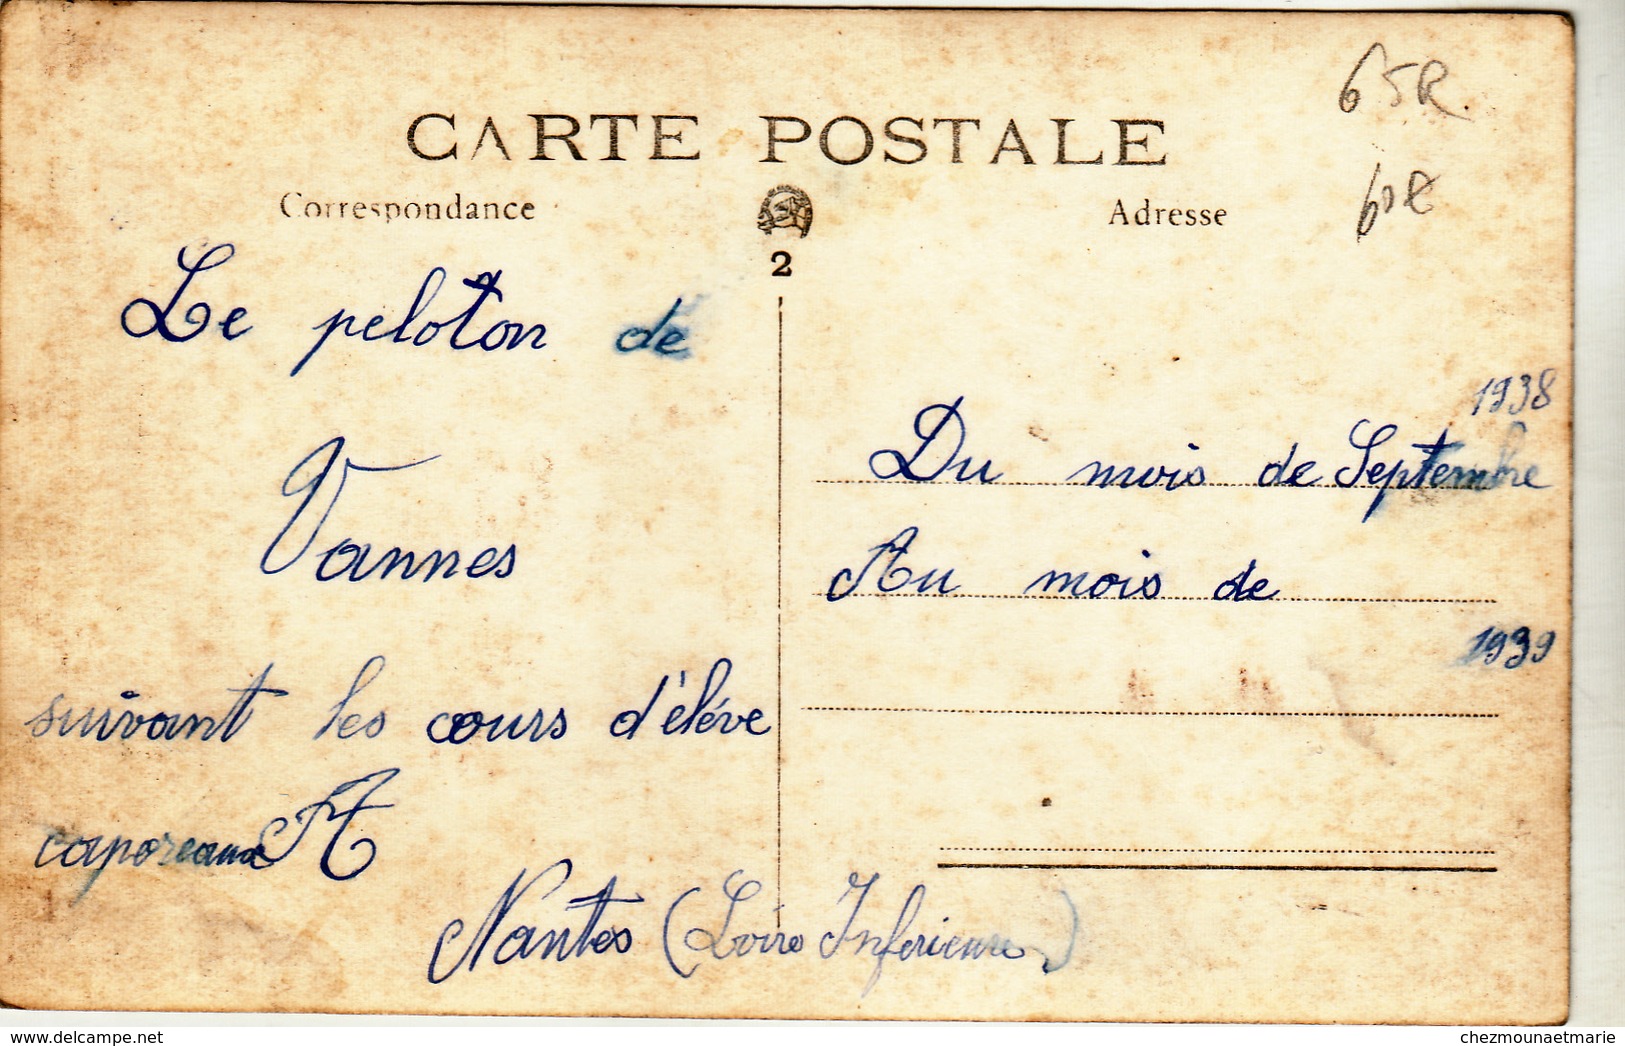 65R.
CARTE POSTALE
60€
Correspondance
Adresse
2
Le peloton de
Vannes
suivant les cours d'éléve
caporeaux A
Nantes (Loire Inferieure)
1938
Du mois de Septembre
Au mois de
1939
www.delcampe.net
chezmounaetmarie